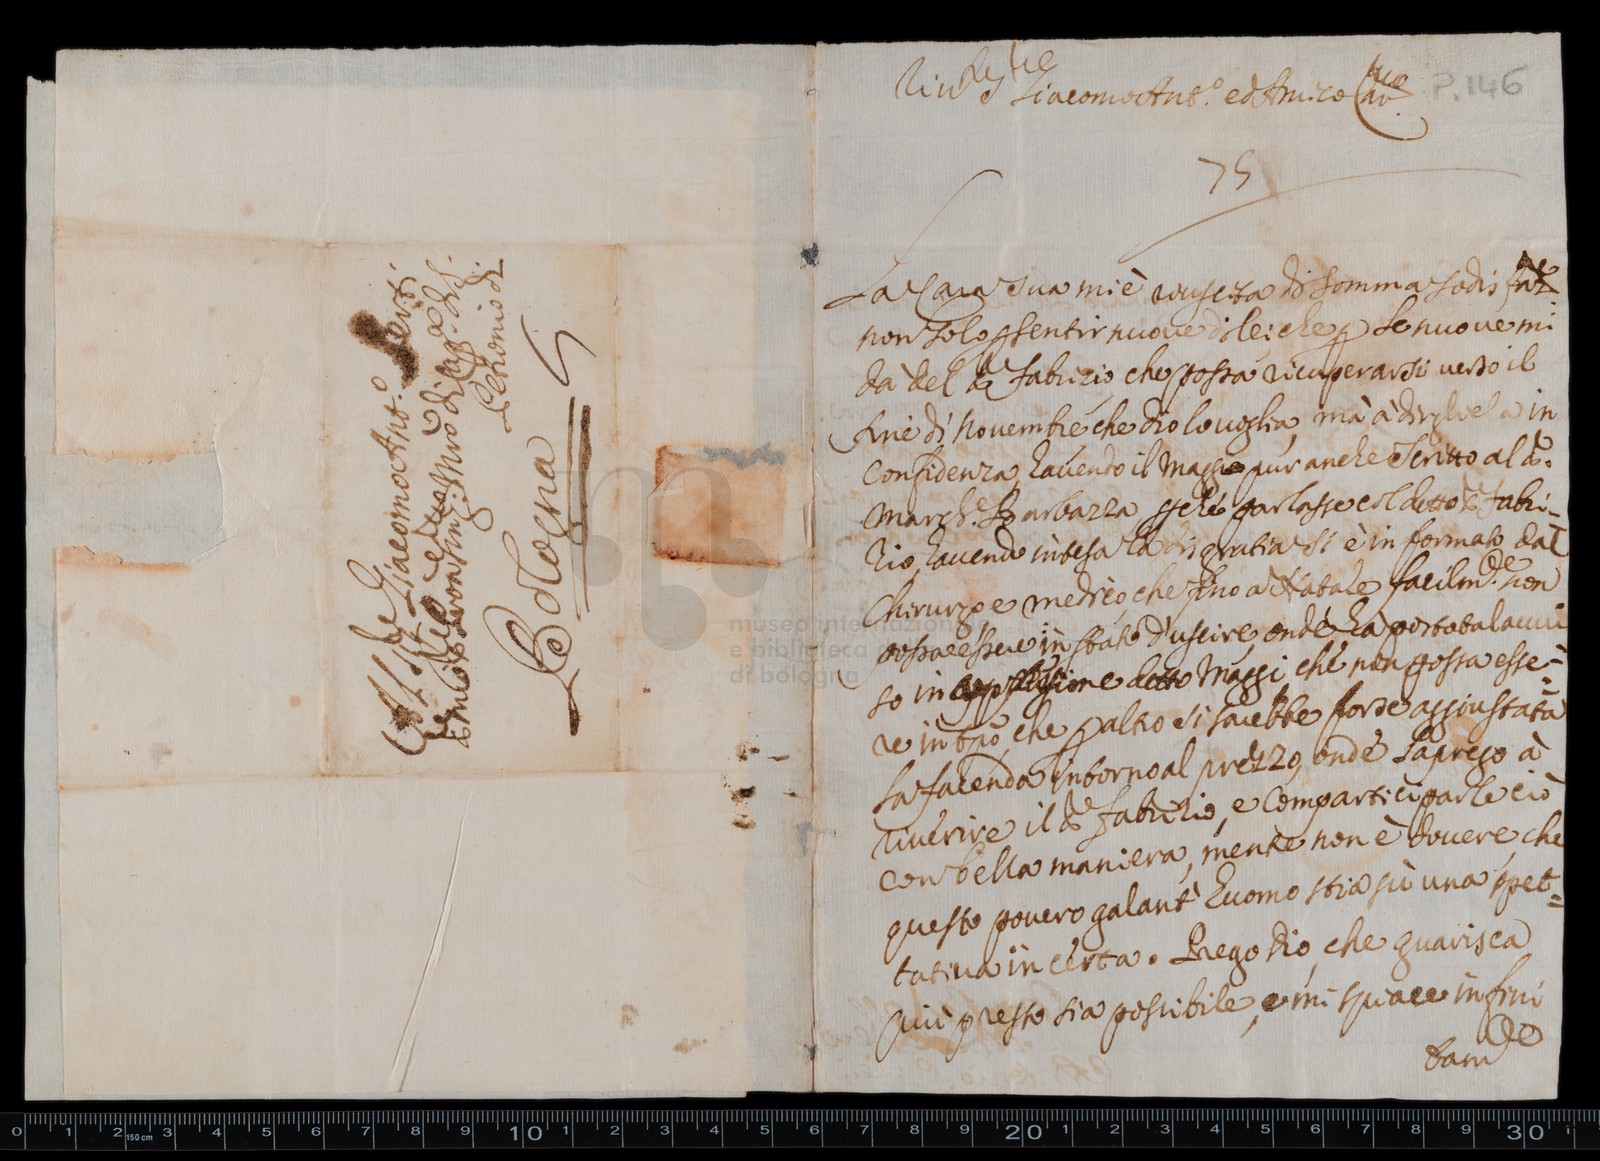 Al Sig.re Giacomo Ant.o Perti
Bologna
museo internazionale
e biblioteca
di bologna
P. 146
Giacomo Ant.o ed Amico Car.mo
75
La Cara Sua mi è di somma sodisfat.ne
non solo p sentir nuove di lei che p le nuove mi
dà del Sr Fabrizio che possa ricuperarsi verso il
fine di Novembre che Dio lo voglia, mà à dirgliela in
Confidenza, havendo il Maggi pur anche Scritto al Sr.
March. Barbazza perché parlasse col detto Sr Fabri-
tio, havendo intesa la disgratia si è informato dal
Chirurgo e medico che fino a Natale facilm.te non
possa essere in stato d'uscire, onde ha portata l'avvi
so in detto Maggi, che non possa esse=
re in tpo, che p altro si sarebbe forse aggiustata
la facenda intorno al prezzo, onde la prego à
riverire il Sr Fabrizio, e Comparteciparle ciò
con bella maniera, mentre non è dovere, che
questo povero galant'huomo stia sù una spet=
tativa incerta. Prego Dio, che guarisca
più presto sia possibile, e mi spiace infini
tam.te
0 1 2 150 cm 3 4 5 6 7 8 9 10 1 2 3 4 5 6 7 8 9 20 1 2 3 4 5 6 7 8 9 30